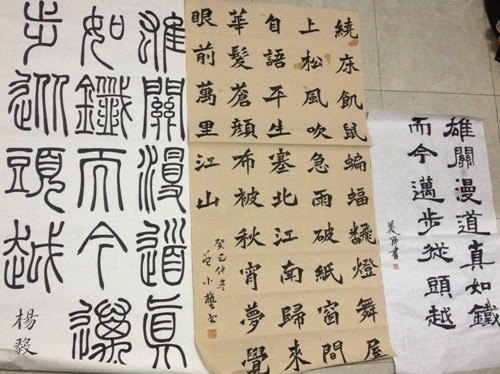 雄關漫道真
如鐵而今邁
步從頭越
楊毅
繞床飢鼠蝙蝠飜燈舞屋
上松風吹急雨破紙窗間
自語平生塞北江南歸來
華髮蒼顏布被秋宵夢覺
眼前萬里江山
癸巳仲冬
小藝書
雄關漫道真如鐵
而今邁步從頭越